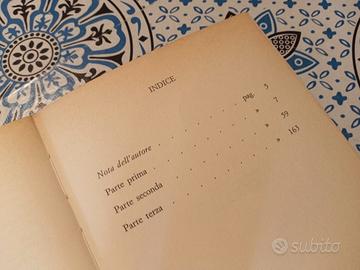 INDICE
Nota dell'autore . . . . . . pag. 5
Parte prima . . . . . . . » 7
Parte seconda . . . . . . » 59
Parte terza . . . . . . . » 163
subito